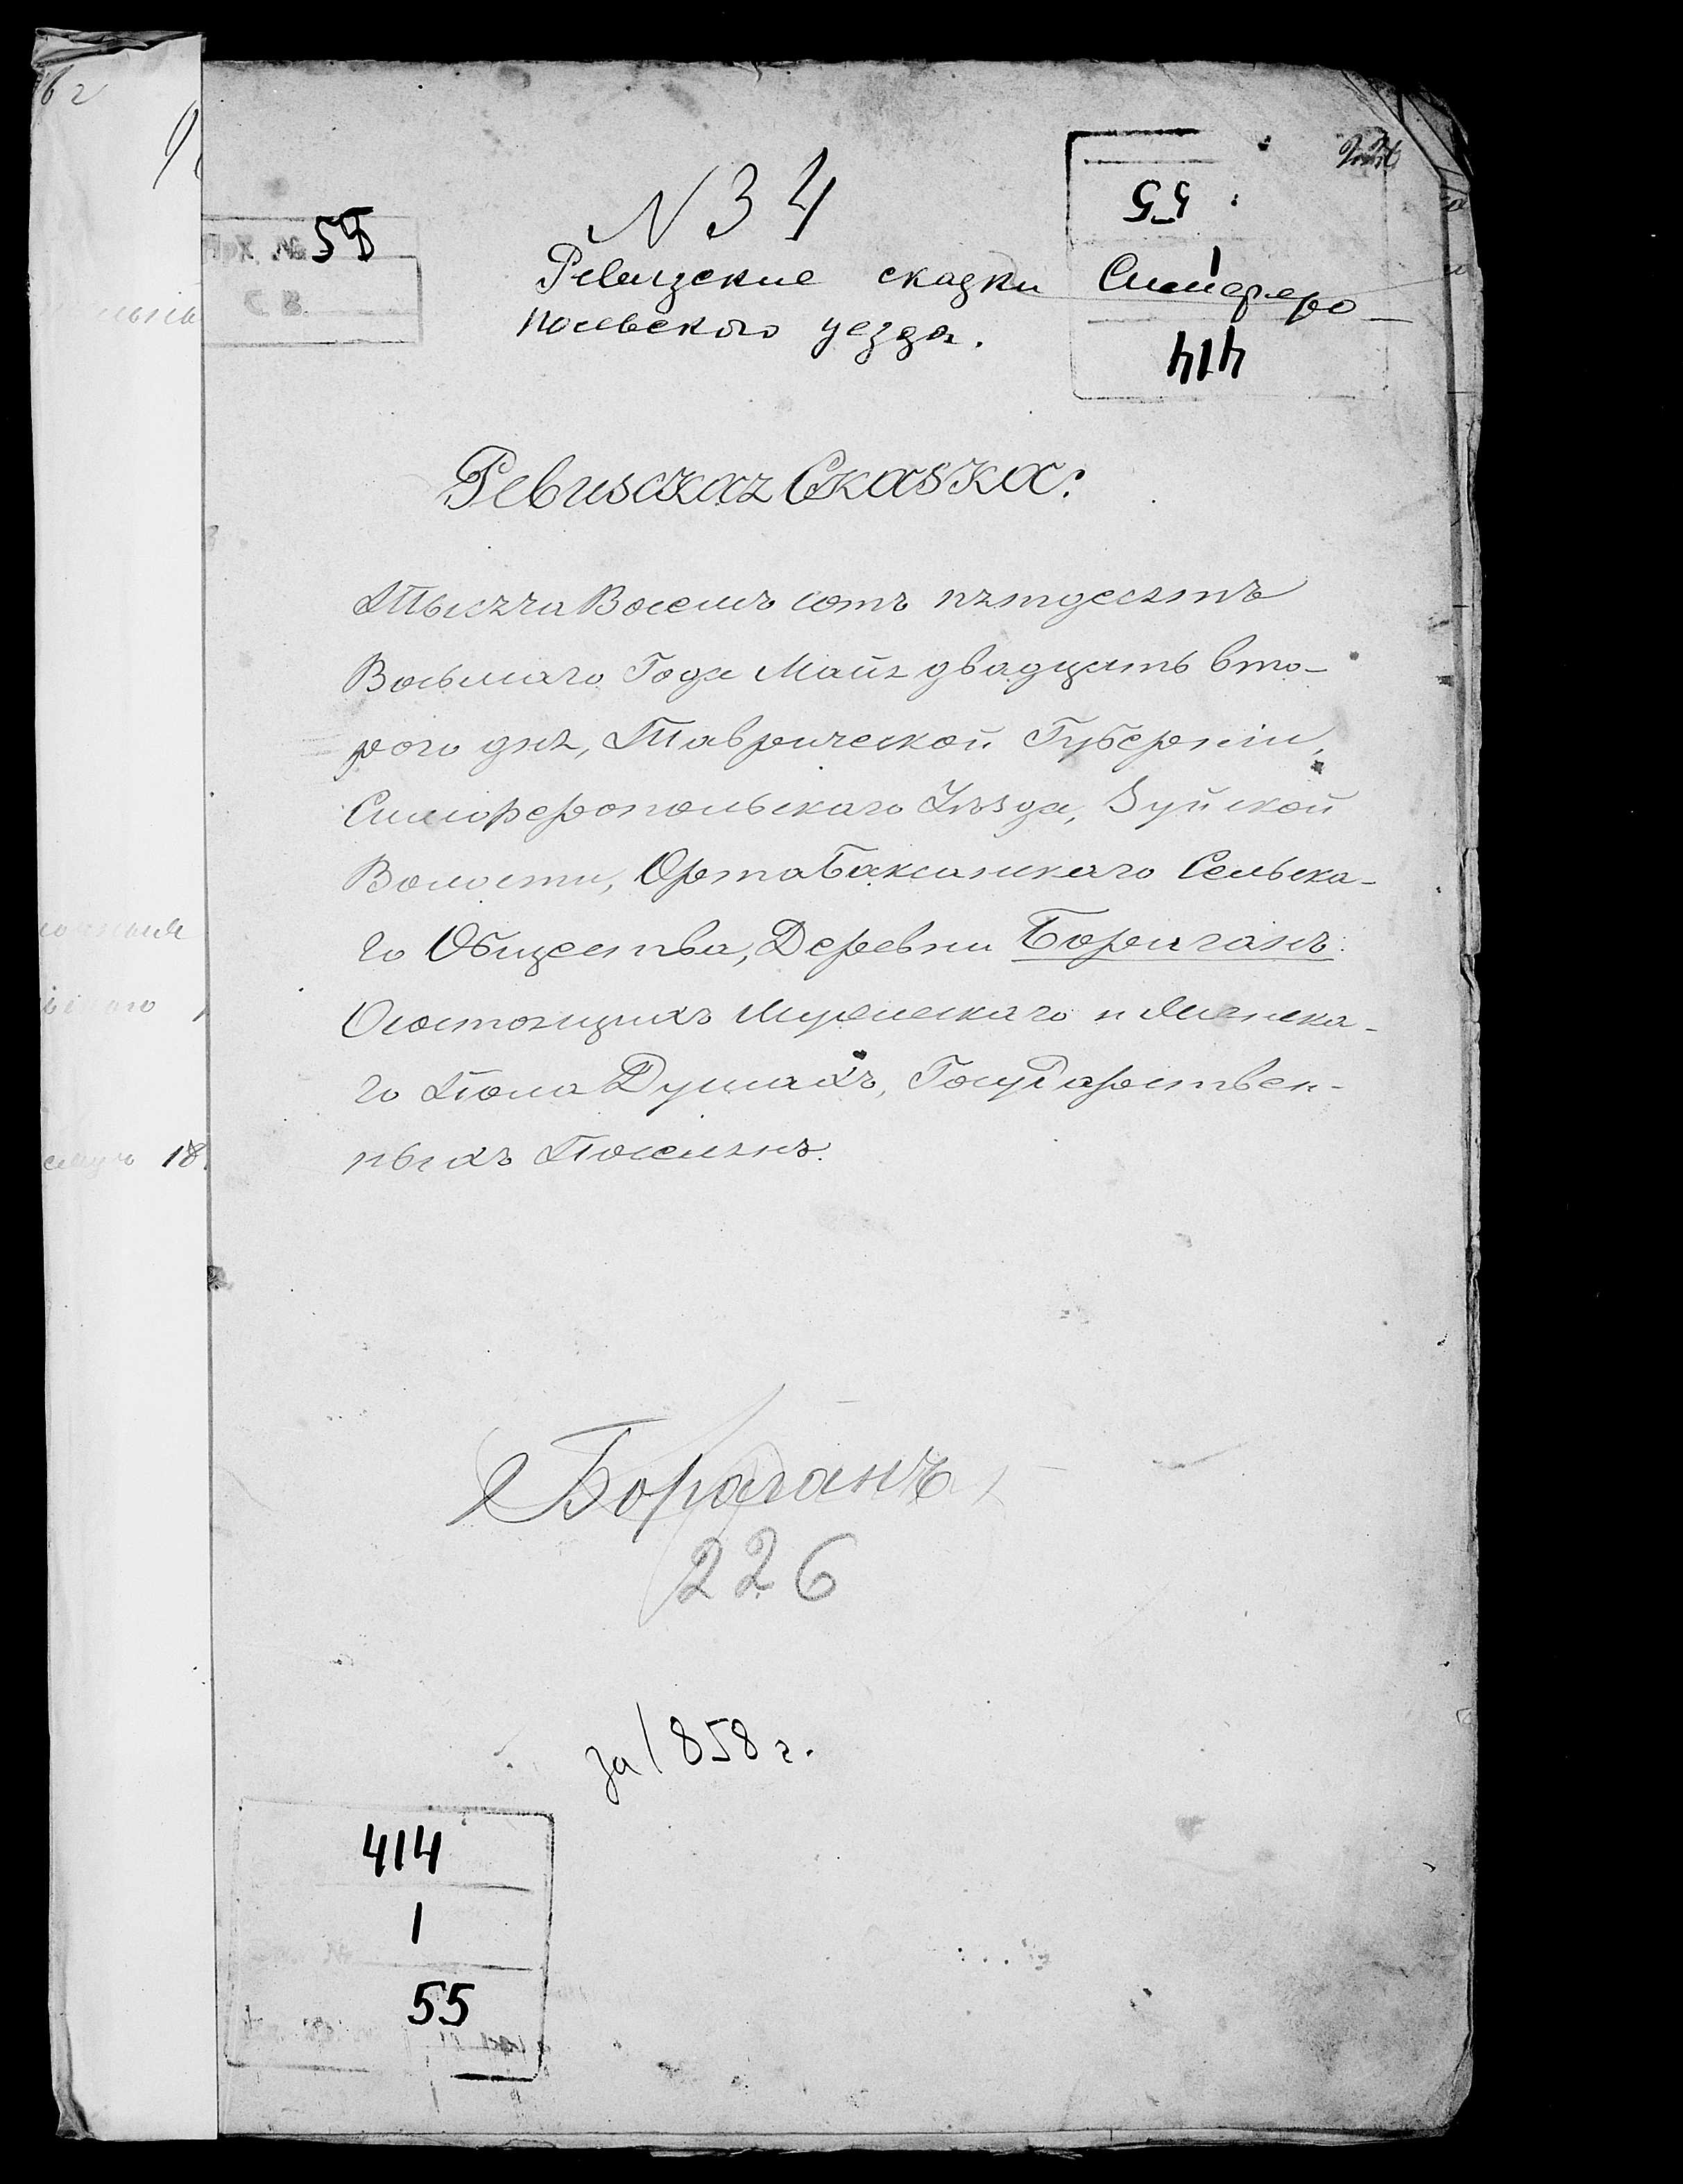 N 34
55
55
1
414
Ревизские сказки Симферо-
польского уезда.
Ревизская Сказка:
Тысяча Восемь сотъ пятдесятъ
Восьмаго Года Маия двадцать вто-
рого дня, Таврической Губерніи,
Симферопольскаго Уѣзда, Зуйской
Волости, ОртаБаксанскаго Сельска-
го Общества, Деревни Бориганъ.
О состоящихъ Мужескаго и Женска-
го Пола Душахъ, Государствен-
ныхъ Поселянъ.
Бораганъ
226
за 1858 г.
414
1
55
18